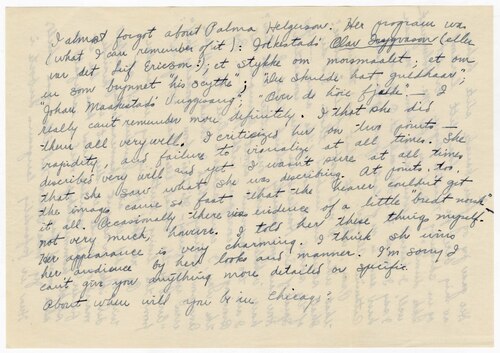 I almost forgot about Palma Helgerson. Her program was
(what I can remember of it): Jolkestads Olav Trygvason (eller
var det Leif Ericson?); et Stykke om morsmaalet; et om
en som brynnet "his scythe"; "Du skulde hat guldhaar";
"Johan Maakestads Tuggusang"; "Over de høie fjelde" — I
really can't remember more definitely. I th she did
them all very well. I criticized her on two points —
rapidity, and failure to visualize at all times. She
described very well and yet I wasn't sure at all times
that she saw what she was describing. At points, too,
the images came so fast that the hearer couldn't get
it all. Occasionally there was evidence of a little bredt norsk —
not very much, however. I told her these things myself.
Her appearance is very charming. I think she wins
her audience by her looks and manner. I'm sorry I
can't give you anything more detailed or specific
About when will you be in Chicago?